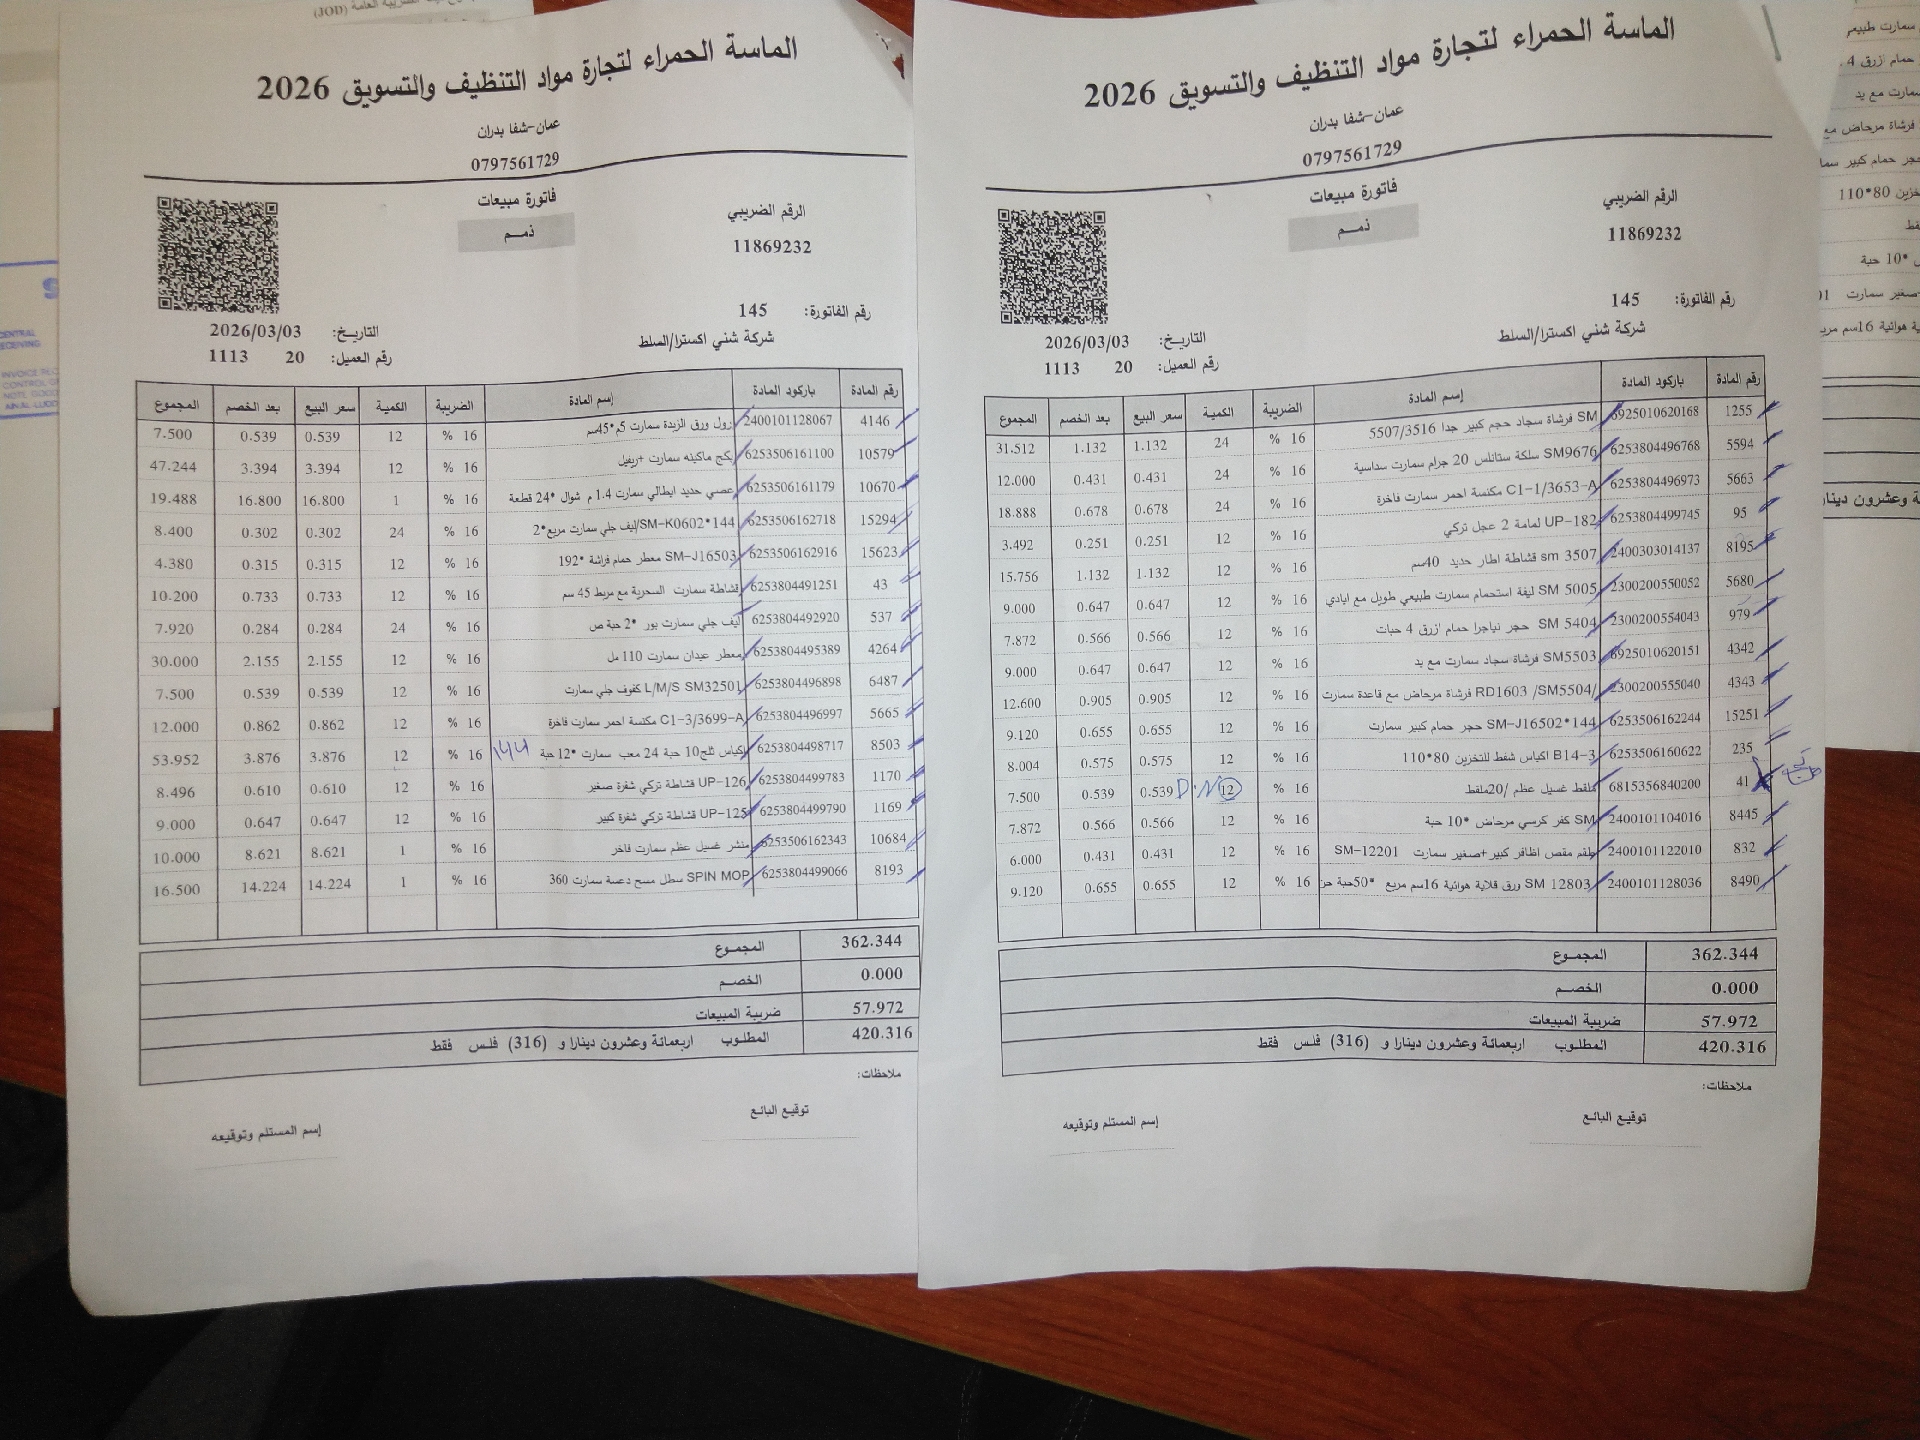 الماسة الحمراء لتجارة مواد التنظيف والتسويق 2026
عمان-شفا بدران
0797561729
فاتورة مبيعات
ذمم
الرقم الضريبي
11869232
رقم الفاتورة: 145
التاريخ: 2026/03/03
شركة شني اكسترا/السلط
رقم العميل: 20 1113
رقم المادة باركود المادة إسم المادة الضريبة الكمية سعر البيع بعد الخصم المجموع
1255 6925010620168 SM فرشاة سجاد حجم كبير جدا 5507/3516 16 % 24 1.132 1.132 31.512
5594 6253804496768 SM9676 سلكة ستانلس 20 جرام سمارت سداسية 16 % 24 0.431 0.431 12.000
5663 6253804496973 C1-1/3653-A مكنسة احمر سمارت فاخرة 16 % 24 0.678 0.678 18.888
95 6253804499745 UP-182 لمامة 2 عجل تركي 16 % 12 0.251 0.251 3.492
8195 2400303014137 sm 3507 قشاطة اطار حديد 40سم 16 % 12 1.132 1.132 15.756
5680 2300200550052 SM 5005 ليفة استحمام سمارت طبيعي طويل مع ايادي 16 % 12 0.647 0.647 9.000
979 2300200554043 SM 5404 حجر نياجرا حمام ازرق 4 حبات 16 % 12 0.566 0.566 7.872
4342 6925010620151 SM5503 فرشاة سجاد سمارت مع يد 16 % 12 0.647 0.647 9.000
4343 2300200555040 RD1603 /SM5504/ فرشاة مرحاض مع قاعدة سمارت 16 % 12 0.905 0.905 12.600
15251 6253506162244 SM-J16502*144 حجر حمام كبير سمارت 16 % 12 0.655 0.655 9.120
235 6253506160622 B14-3 اكياس شفط للتخزين 80*110 16 % 12 0.575 0.575 8.004
41 6815356840200 ملقط غسيل عظم /20ملقط 16 % 12 D.N 0.539 0.539 7.500
8445 2400101104016 SM كفر كرسي مرحاض *10 حبة 16 % 12 0.566 0.566 7.872
832 2400101122010 طقم مقص اظافر كبير+صغير سمارت SM-12201 16 % 12 0.431 0.431 6.000
8490 2400101128036 SM 12803 ورق قلاية هوائية 16سم مربع *50حبة حر 16 % 12 0.655 0.655 9.120
المجموع 362.344
الخصم 0.000
ضريبة المبيعات 57.972
المطلوب اربعمائة وعشرون دينارا و (316) فلس فقط 420.316
ملاحظات:
توقيع البائع
إسم المستلم وتوقيعه
الماسة الحمراء لتجارة مواد التنظيف والتسويق 2026
عمان-شفا بدران
0797561729
فاتورة مبيعات
ذمم
الرقم الضريبي
11869232
رقم الفاتورة: 145
التاريخ: 2026/03/03
شركة شني اكسترا/السلط
رقم العميل: 20 1113
رقم المادة باركود المادة إسم المادة الضريبة الكمية سعر البيع بعد الخصم المجموع
4146 2400101128067 رول ورق الزبدة سمارت 5م*45سم 16 % 12 0.539 0.539 7.500
10579 6253506161100 بكج ماكينه سمارت +ريفيل 16 % 12 3.394 3.394 47.244
10670 6253506161179 عصي حديد ايطالي سمارت 1.4 م شوال *24 قطعة 16 % 1 16.800 16.800 19.488
15294 6253506162718 SM-K0602*144/ليف جلي سمارت مربع*2 16 % 24 0.302 0.302 8.400
15623 6253506162916 SM-J16503 معطر حمام فراشة *192 16 % 12 0.315 0.315 4.380
43 6253804491251 قشاطة سمارت السحرية مع مربط 45 سم 16 % 12 0.733 0.733 10.200
537 6253804492920 ليف جلي سمارت بور *2 حبة ص 16 % 24 0.284 0.284 7.920
4264 6253804495389 معطر عيدان سمارت 110 مل 16 % 12 2.155 2.155 30.000
6487 6253804496898 L/M/S SM32501 كفوف جلي سمارت 16 % 12 0.539 0.539 7.500
5665 6253804496997 C1-3/3699-A مكنسة احمر سمارت فاخرة 16 % 12 0.862 0.862 12.000
8503 6253804498717 اكياس ثلج10 حبة 24 معب سمارت *12 حبة 144 16 % 12 3.876 3.876 53.952
1170 6253804499783 UP-126 قشاطة تركي شفرة صغير 16 % 12 0.610 0.610 8.496
1169 6253804499790 UP-125 قشاطة تركي شفرة كبير 16 % 12 0.647 0.647 9.000
10684 6253506162343 منشر غسيل عظم سمارت فاخر 16 % 1 8.621 8.621 10.000
8193 6253804499066 SPIN MOP سطل مسح دعسة سمارت 360 16 % 1 14.224 14.224 16.500
المجموع 362.344
الخصم 0.000
ضريبة المبيعات 57.972
المطلوب اربعمائة وعشرون دينارا و (316) فلس فقط 420.316
ملاحظات:
توقيع البائع
إسم المستلم وتوقيعه
سمارت طبيعي
حمام ازرق 4
سمارت مع يد
فرشاة مرحاض مع
حجر حمام كبير سما
110*80
*10 حبة
صغير سمارت
ة هوائية 16سم مربع
ة وعشرون دينار
CENTRAL
RECEIVING